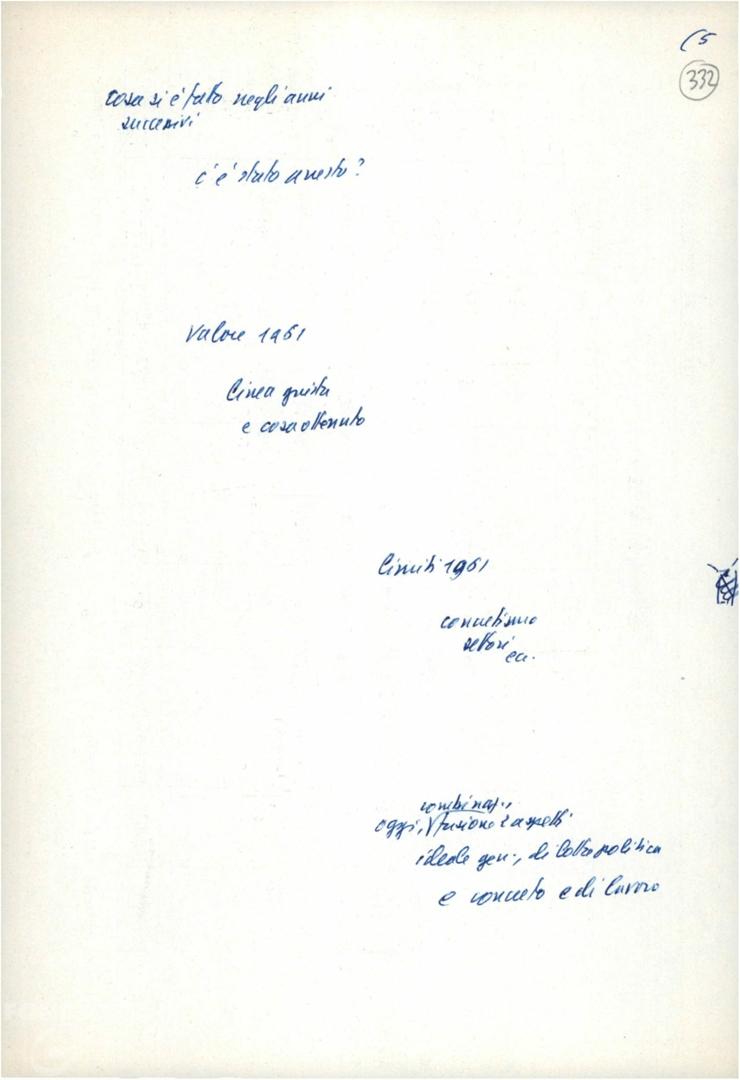 (5
332
cosa si è fatto negli anni
successivi
c'è stato arresto?
Valore 1961
linea giusta
e cosa ottenuto
limiti 1961
concretismo
settori
ecc.
combinaz.,
oggi, fusione 2 aspetti
ideale gen., di lotta politica
e concreto e di lavoro